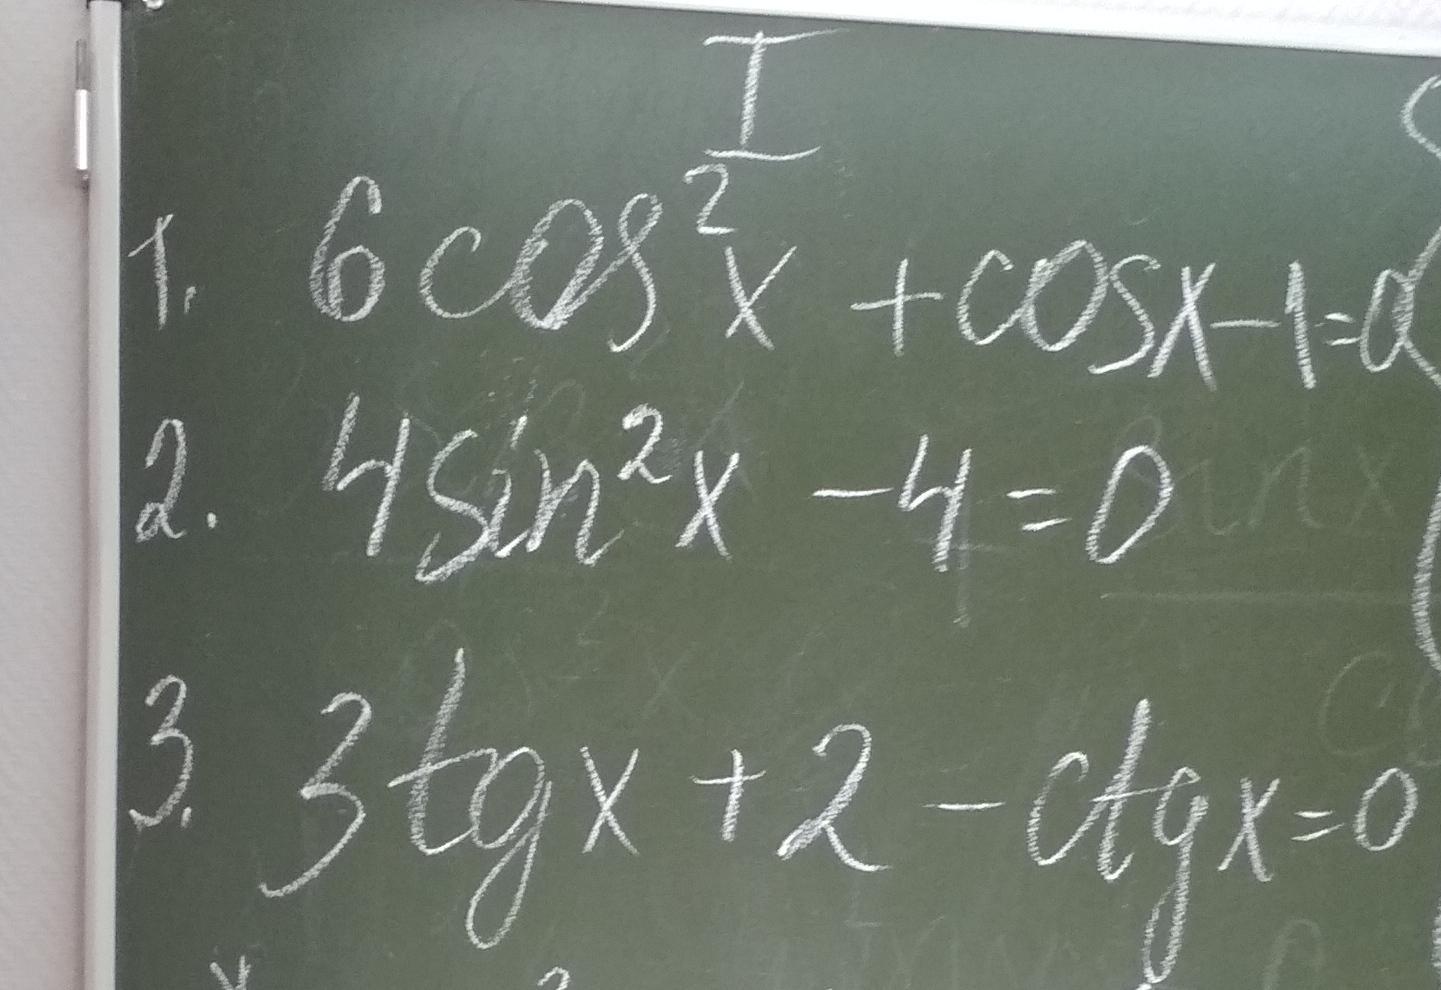 I
1. 6cos²x + cosx - 1 = 0
2. 4sin²x - 4 = 0
3. 3tgx + 2 - ctgx = 0